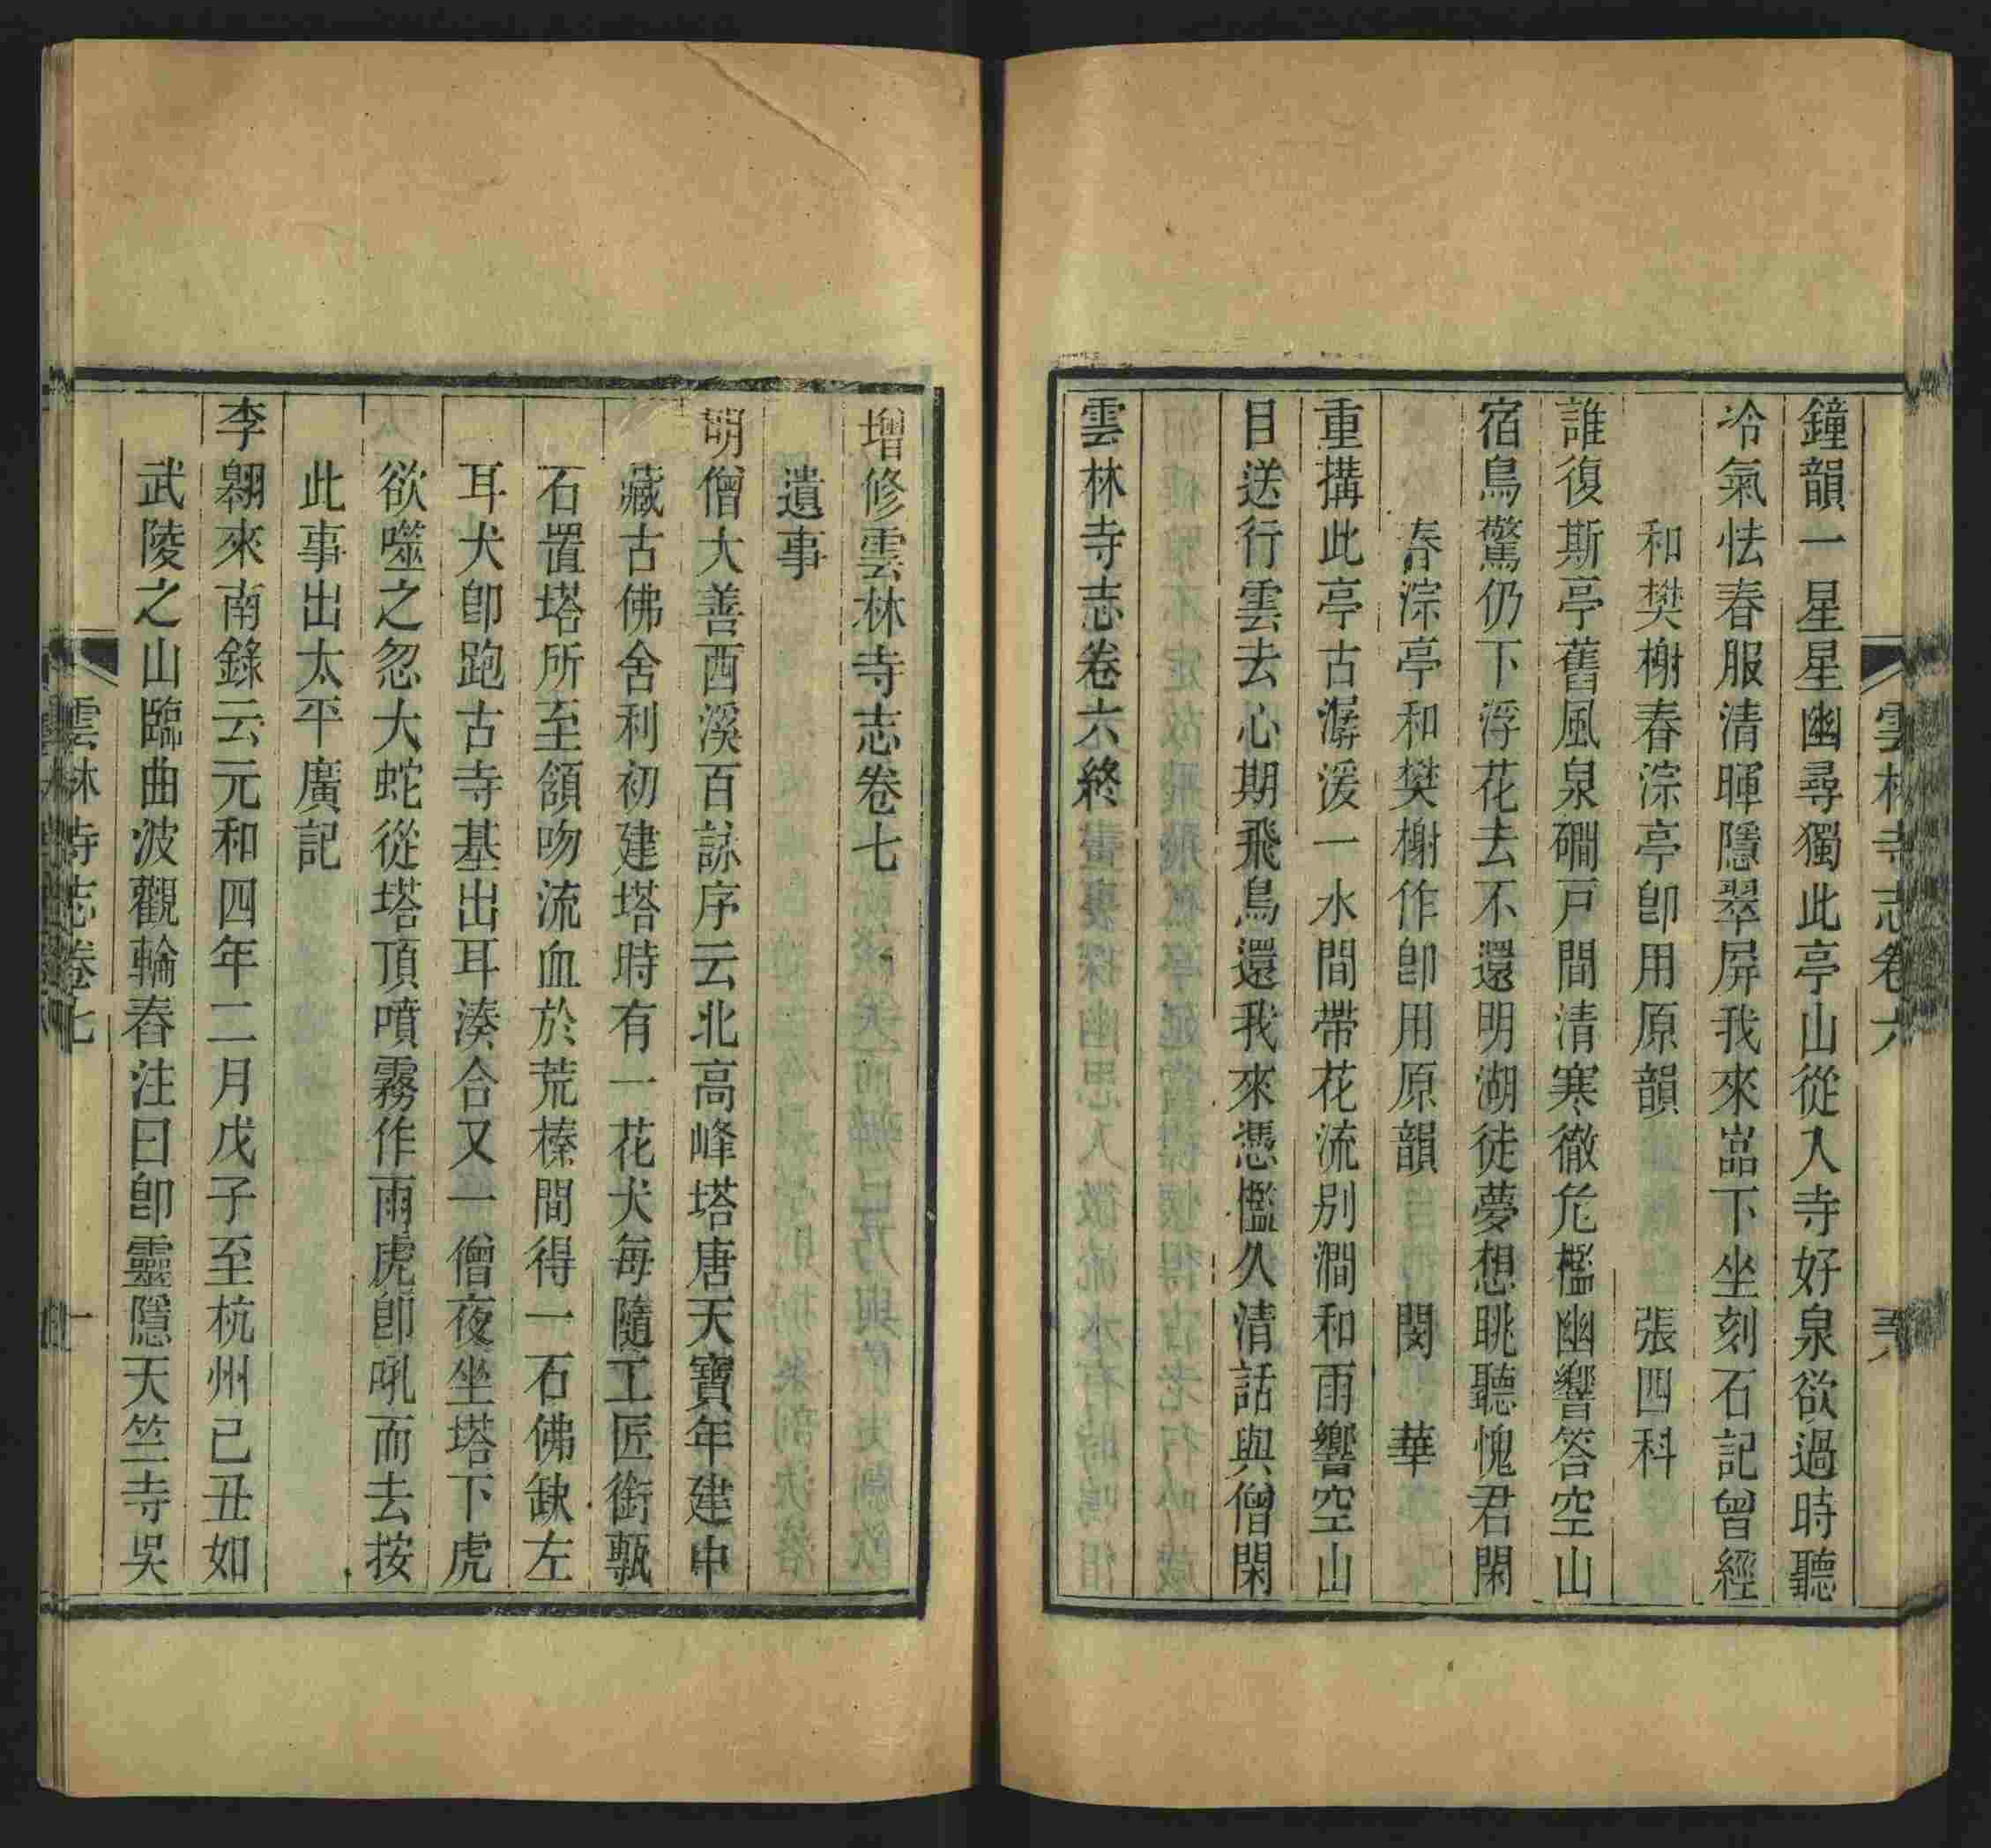 雲林寺志卷六
鐘韻一星星幽尋獨此亭山從入寺好泉欲過時聽
冷氣怯春服清暉隱翠屏我來嵓下坐刻石記曾經
和樊榭春淙亭卽用原韻　張四科
誰復斯亭舊風泉磵戸間清寒徹危檻幽響答空山
宿鳥驚仍下浮花去不還明湖徒夢想眺聽愧君閑
春淙亭和樊榭作卽用原韻　閔　華
重搆此亭古潺湲一水間帶花流別澗和雨響空山
目送行雲去心期飛鳥還我來憑檻久清話與僧閑
雲林寺志卷六終
增修雲林寺志卷七
遺事
明僧大善西溪百詠序云北高峰塔唐天寶年建中
藏古佛舍利初建塔時有一花犬每隨工匠銜甎
石置塔所至頷吻流血於荒榛間得一石佛缺左
耳犬卽跑古寺基出耳湊合又一僧夜坐塔下虎
欲噬之忽大蛇從塔頂噴霧作雨虎卽吼而去按
此事出太平廣記
李翶來南錄云元和四年二月戊子至杭州己丑如
武陵之山臨曲波觀輪舂注曰卽靈隱天竺寺吳
雲林寺志卷七
一